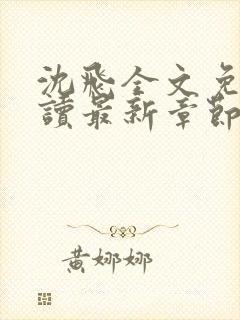 沈飛全文免
讀最新章節
黃娜娜